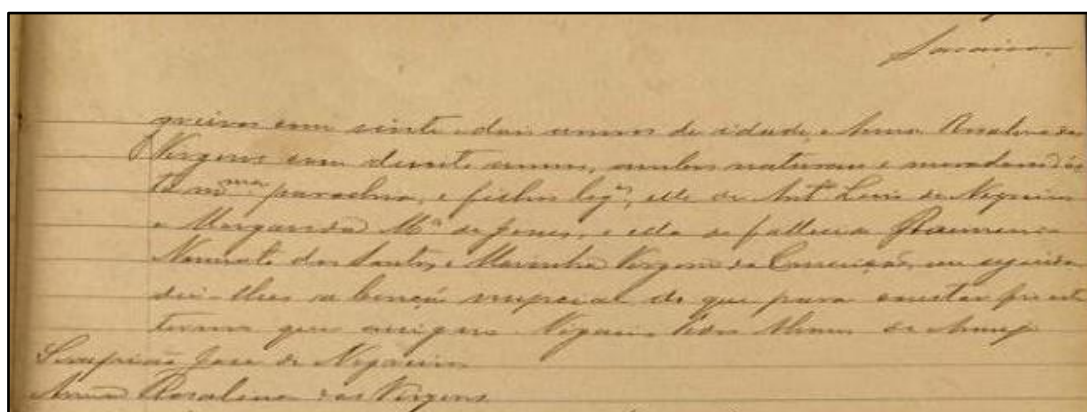 Saraiva
queiros com vinte e dois annos de idade, e Anna Rosalina das
Virgens com desoito annos, ambos naturaes e moradores des
ta mma parochia, e filhos legos, elle de Anto Luis de Nequeiros
e Margarida Ma de Jesus, e ella do fallecido
Nonnato dos Santos, e Marinha Virgem da Conceição, em seguida
dei-lhes a benção nupcial do que para constar fiz este
termo que assigno. Vigario
Serafino José de Nequeiros
Anna Rosalina das Virgens